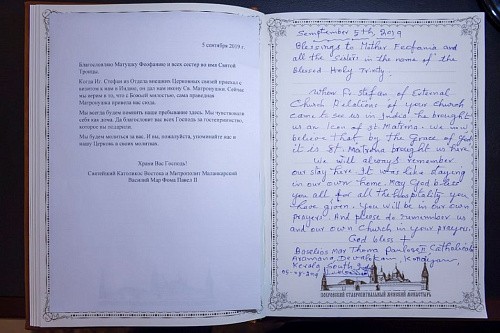 5 сентября 2019 г.
Благословляю Матушку Феофанию и всех сестер во имя Святой
Троицы.
Когда Иг. Стефан из Отдела внешних Церковных связей приехал с
визитом к нам в Индию, он дал нам икону Св. Матронушки. Сейчас
мы верим в то, что с Божьей милостью, сама праведная
Матронушка привела нас сюда.
Мы всегда будем помнить наше пребывание здесь. Мы чувствовали
себя как дома. Да благословит вас всех Господь за гостеприимство,
которое вы подарили.
Мы будем молиться за вас. И вы, пожалуйста, упоминайте нас и
нашу Церковь в своих молитвах.
Храни Вас Господь!
Святейший Католикос Востока и Митрополит Маланкарский
Василий Мар Фома Павел II
Semptember 5th, 2019
Blessings to Mother Feofania and
all the Sisters in the name of the
Blessed Holy Trinity.
When Fr. Stefan of External
Church Relations of your church
came to see us in India, he brought
us an Icon of St. Matrona. We now
believe that by the Grace of God
it is St. Matrona brought us here.
We will always remember
our stay here. It was like staying
in our own home. May God bless
you all for all the hospitality you
have given. You will be in our own
prayers. And please do remember us
and our own Church in your prayers.
God bless +
Baselios Mar Thoma Paulose II, Catholicate
Aramana, Devalokam, Kottayam,
Kerala, South India
05-09-2019
ПОКРОВСКИЙ СТАВРОПИГИАЛЬНЫЙ ЖЕНСКИЙ МОНАСТЫРЬ